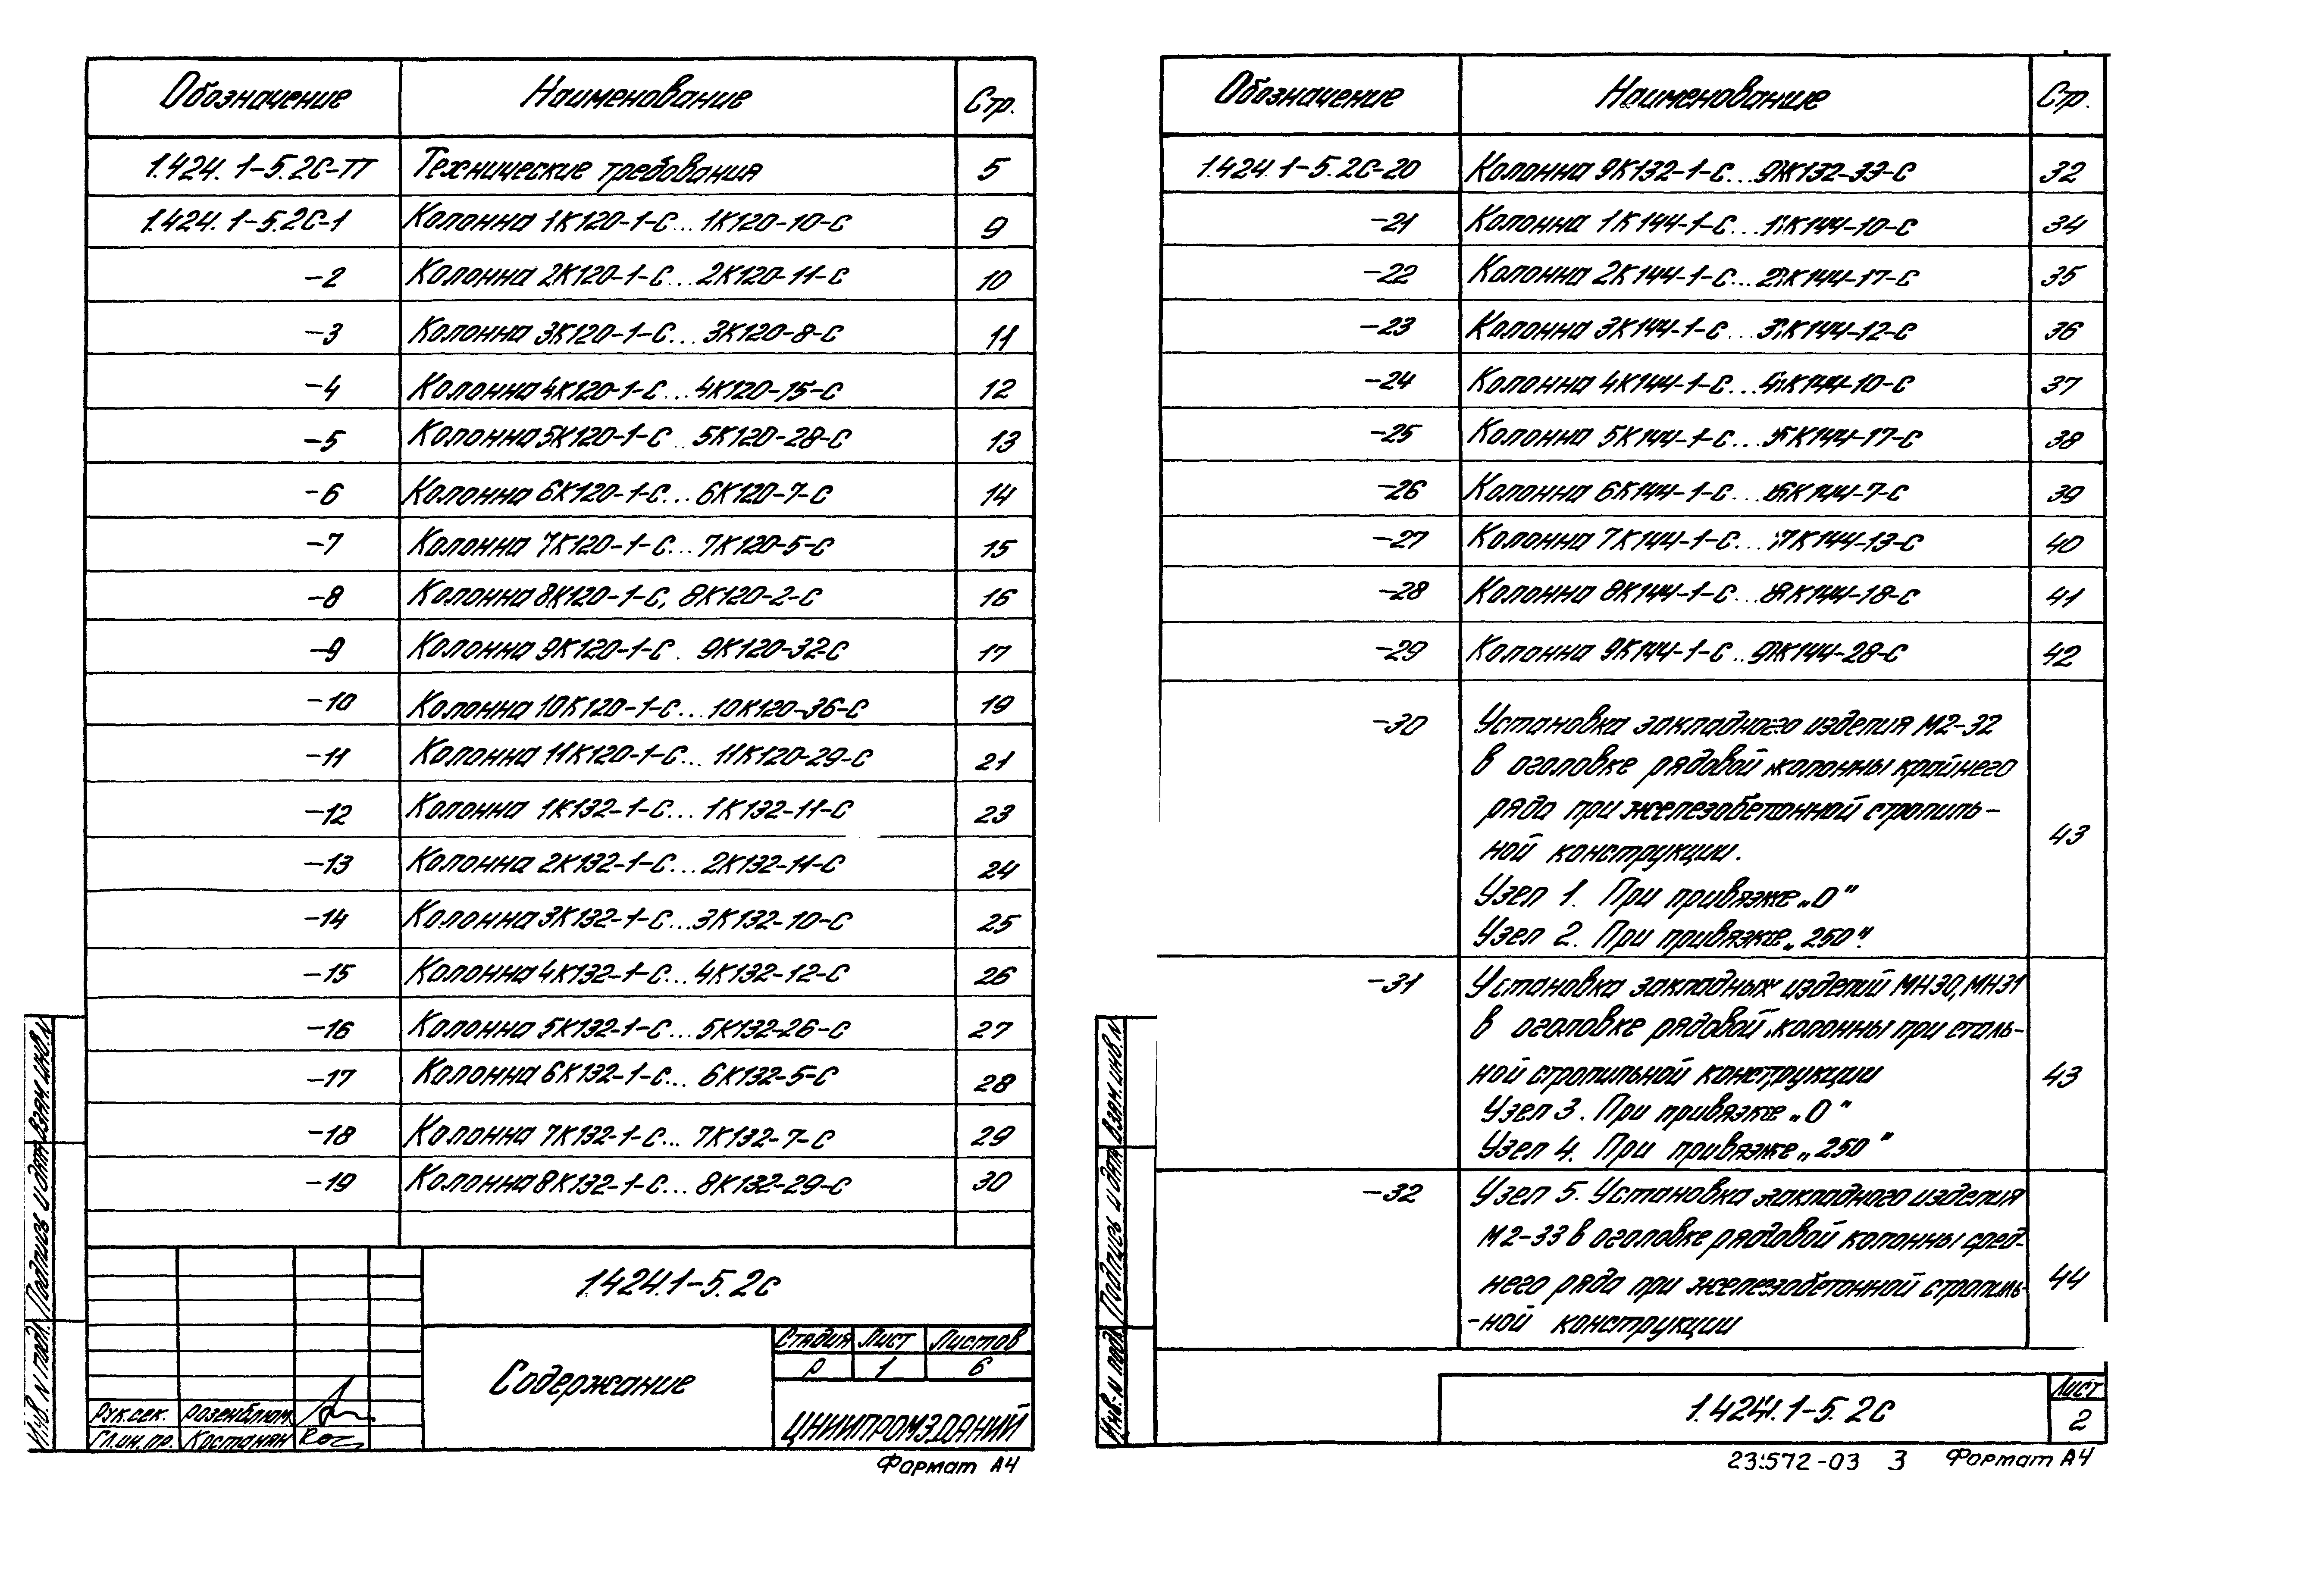 Обозначение Наименование Стр.
1.424.1-5.2С-ТТ Технические требования 5
1.424.1-5.2С-1 Колонна 1К120-1-С...1К120-10-С 9
-2 Колонна 2К120-1-С...2К120-11-С 10
-3 Колонна 3К120-1-С...3К120-8-С 11
-4 Колонна 4К120-1-С...4К120-15-С 12
-5 Колонна 5К120-1-С..5К120-28-С 13
-6 Колонна 6К120-1-С...6К120-7-С 14
-7 Колонна 7К120-1-С...7К120-5-С 15
-8 Колонна 8К120-1-С, 8К120-2-С 16
-9 Колонна 9К120-1-С. 9К120-32-С 17
-10 Колонна 10К120-1-С...10К120-36-С 19
-11 Колонна 11К120-1-С...11К120-29-С 21
-12 Колонна 1К132-1-С...1К132-11-С 23
-13 Колонна 2К132-1-С...2К132-11-С 24
-14 Колонна 3К132-1-С...3К132-10-С 25
-15 Колонна 4К132-1-С...4К132-12-С 26
-16 Колонна 5К132-1-С...5К132-26-С 27
-17 Колонна 6К132-1-С...6К132-5-С 28
-18 Колонна 7К132-1-С...7К132-7-С 29
-19 Колонна 8К132-1-С...8К132-29-С 30
1.424.1-5.2С
Содержание
Стадия Лист Листов
Р 1 6
ЦНИИПРОМЗДАНИЙ
Рук.сек. Розенблюм
Гл.ин.пр. Костанян
Инв. N подл. Подпись и дата Взам. инв. N
Формат А4
Обозначение Наименование Стр.
1.424.1-5.2С-20 Колонна 9К132-1-С...9К132-33-С 32
-21 Колонна 1К144-1-С...1К144-10-С 34
-22 Колонна 2К144-1-С...2К144-17-С 35
-23 Колонна 3К144-1-С...3К144-12-С 36
-24 Колонна 4К144-1-С...4К144-10-С 37
-25 Колонна 5К144-1-С...5К144-17-С 38
-26 Колонна 6К144-1-С...6К144-7-С 39
-27 Колонна 7К144-1-С...7К144-13-С 40
-28 Колонна 8К144-1-С...8К144-18-С 41
-29 Колонна 9К144-1-С..9К144-28-С 42
-30 Установка закладного изделия М2-32
в оголовке рядовой колонны крайнего
ряда при железобетонной стропиль-
ной конструкции. 43
Узел 1. При привязке „0"
Узел 2. При привязке „250".
-31 Установка закладных изделий МН30, МН31
в оголовке рядовой колонны при сталь-
ной стропильной конструкции 43
Узел 3. При привязке „0"
Узел 4. При привязке „250"
-32 Узел 5. Установка закладного изделия
М2-33 в оголовке рядовой колонны сред-
него ряда при железобетонной стропиль- 44
-ной конструкции
Инв. N подл. Подпись и дата Взам. инв. N
1.424.1-5.2С
Лист
2
23572-03 3 Формат А4